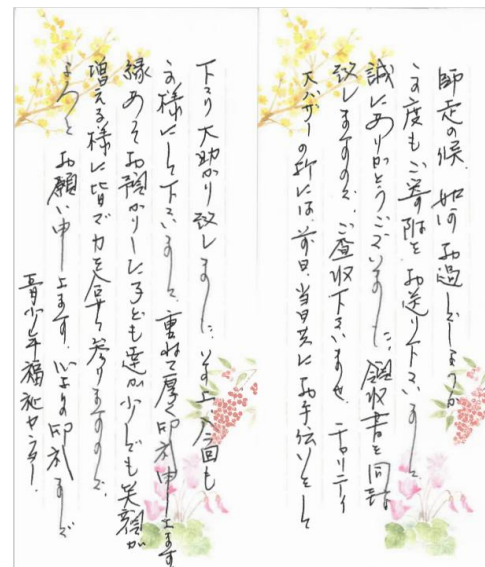 師走の候、如何お過しでしょうか
この度もご寄附をお送り下さいまして
誠にありがとうございました。領収書を同封
致しますので、ご査収下さいませ。チャリティ
大バザーの折には前日、当日共にお手伝いをして
下さり大助かり致しました。その上、今回も
この様にして下さいまして、重ねて厚く御礼申し上げます
縁あってお預かりした子ども達が少しでも笑顔が
増える様に皆で力を合わせ参りますので、
よろしくお願い申し上げます。心より御礼まで
青少年福祉センター